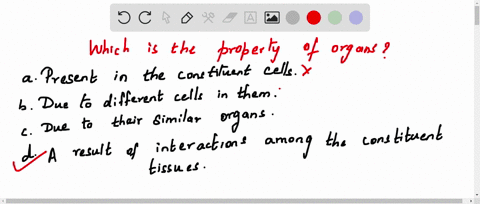 Which is the property of organs?
a. Present in the constituent cells. x
b. Due to different cells in them.
c. Due to their similar organs.
d. A result of interactions among the constituent
tissues.